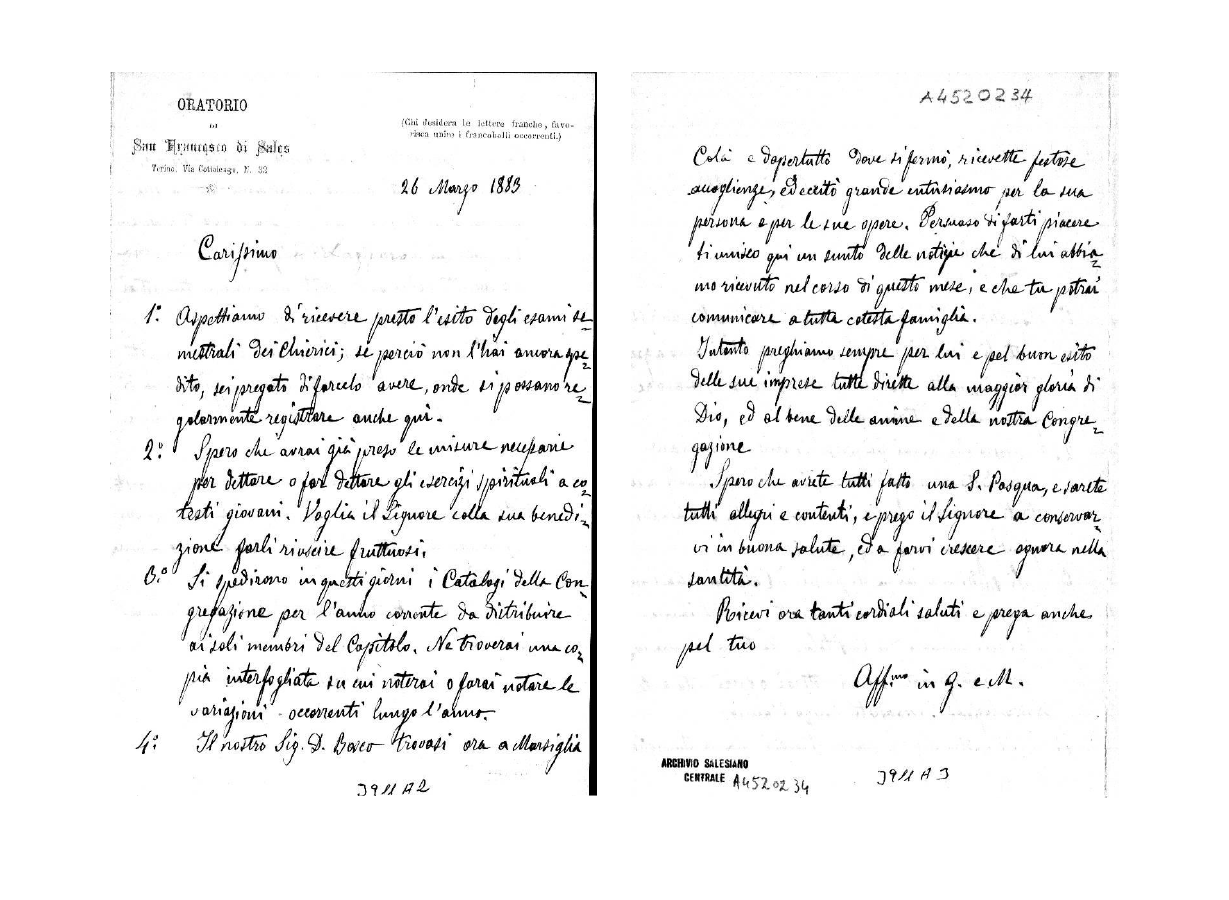 ORATORIO
DI
San Francesco di Sales
Torino, Via Cottolengo, N. 32
(Chi desidera le lettere franche, favo-
risca unire i francobolli occorrenti.)
26 Marzo 1883
Carissimo
1.° Aspettiamo di ricevere presto l'esito degli esami se-
mestrali dei Chierici; se perciò non l'hai ancora spe-
dito, sei pregato di farcelo avere, onde si possano re-
golarmente registrare anche qui.
2.° Spero che avrai già preso le misure necessarie
per dettare o far dettare gli esercizi spirituali a co-
testi giovani. Voglia il Signore colla sua benedi-
zione farli riuscire fruttuosi.
3.° Si spedirono in questi giorni i Catalogi della Con-
gregazione per l'anno corrente da distribuire
ai soli membri del Capitolo. Ne troverai una co-
pia interfogliata su cui noterai o farai notare le
variazioni occorrenti lungo l'anno.
4.° Il nostro Sig. D. Bosco trovasi ora a Marsiglia
3911 A2
A4520234
Colà e dapertutto dove si fermò, ricevette festose
accoglienze, ed eccitò grande entusiasmo per la sua
persona e per le sue opere. Persuaso di farti piacere
ti unisco qui un sunto delle notizie che di lui abbia-
mo ricevuto nel corso di questo mese, e che tu potrai
comunicare a tutta cotesta famiglia.
Intanto preghiamo sempre per lui e pel buon esito
delle sue imprese tutte dirette alla maggior gloria di
Dio, ed al bene delle anime e della nostra Congre-
gazione
Spero che avrete tutti fatto una S. Pasqua, e sarete
tutti allegri e contenti, e prego il Signore a conservar-
vi in buona salute, ed a farvi crescere ognora nella
santità.
Ricevi ora tanti cordiali saluti e prega anche
pel tuo
Aff.mo in G. e M.
ARCHIVIO SALESIANO
CENTRALE A4520234
3911 A3